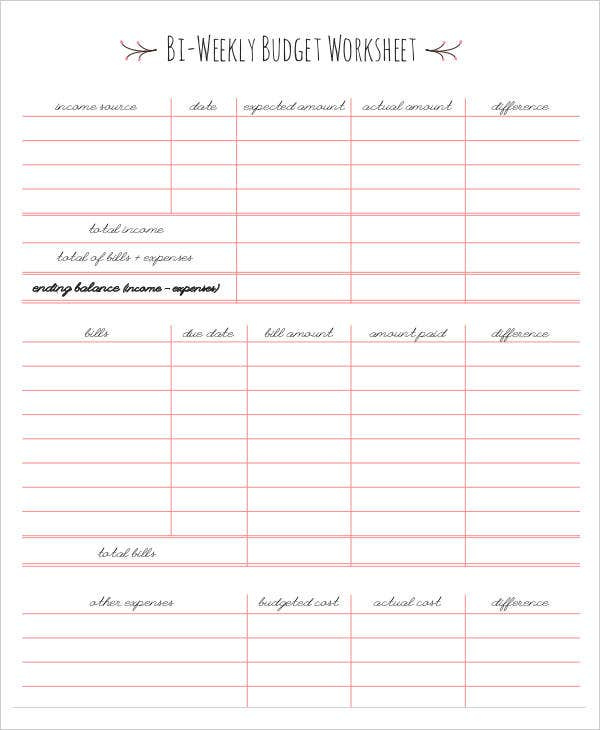 Bi-Weekly Budget Worksheet
income source date expected amount actual amount difference
total income
total of bills + expenses
ending balance (income - expenses)
bills due date bill amount amount paid difference
total bills
other expenses budgeted cost actual cost difference